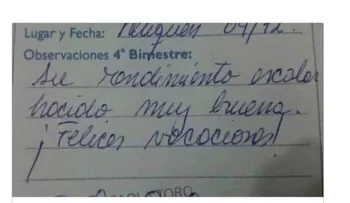 Lugar y Fecha: Neuquén 04/12.
Observaciones 4° Bimestre:
Su rendimiento escolar
ha sido muy bueno.
¡Felices vacaciones!